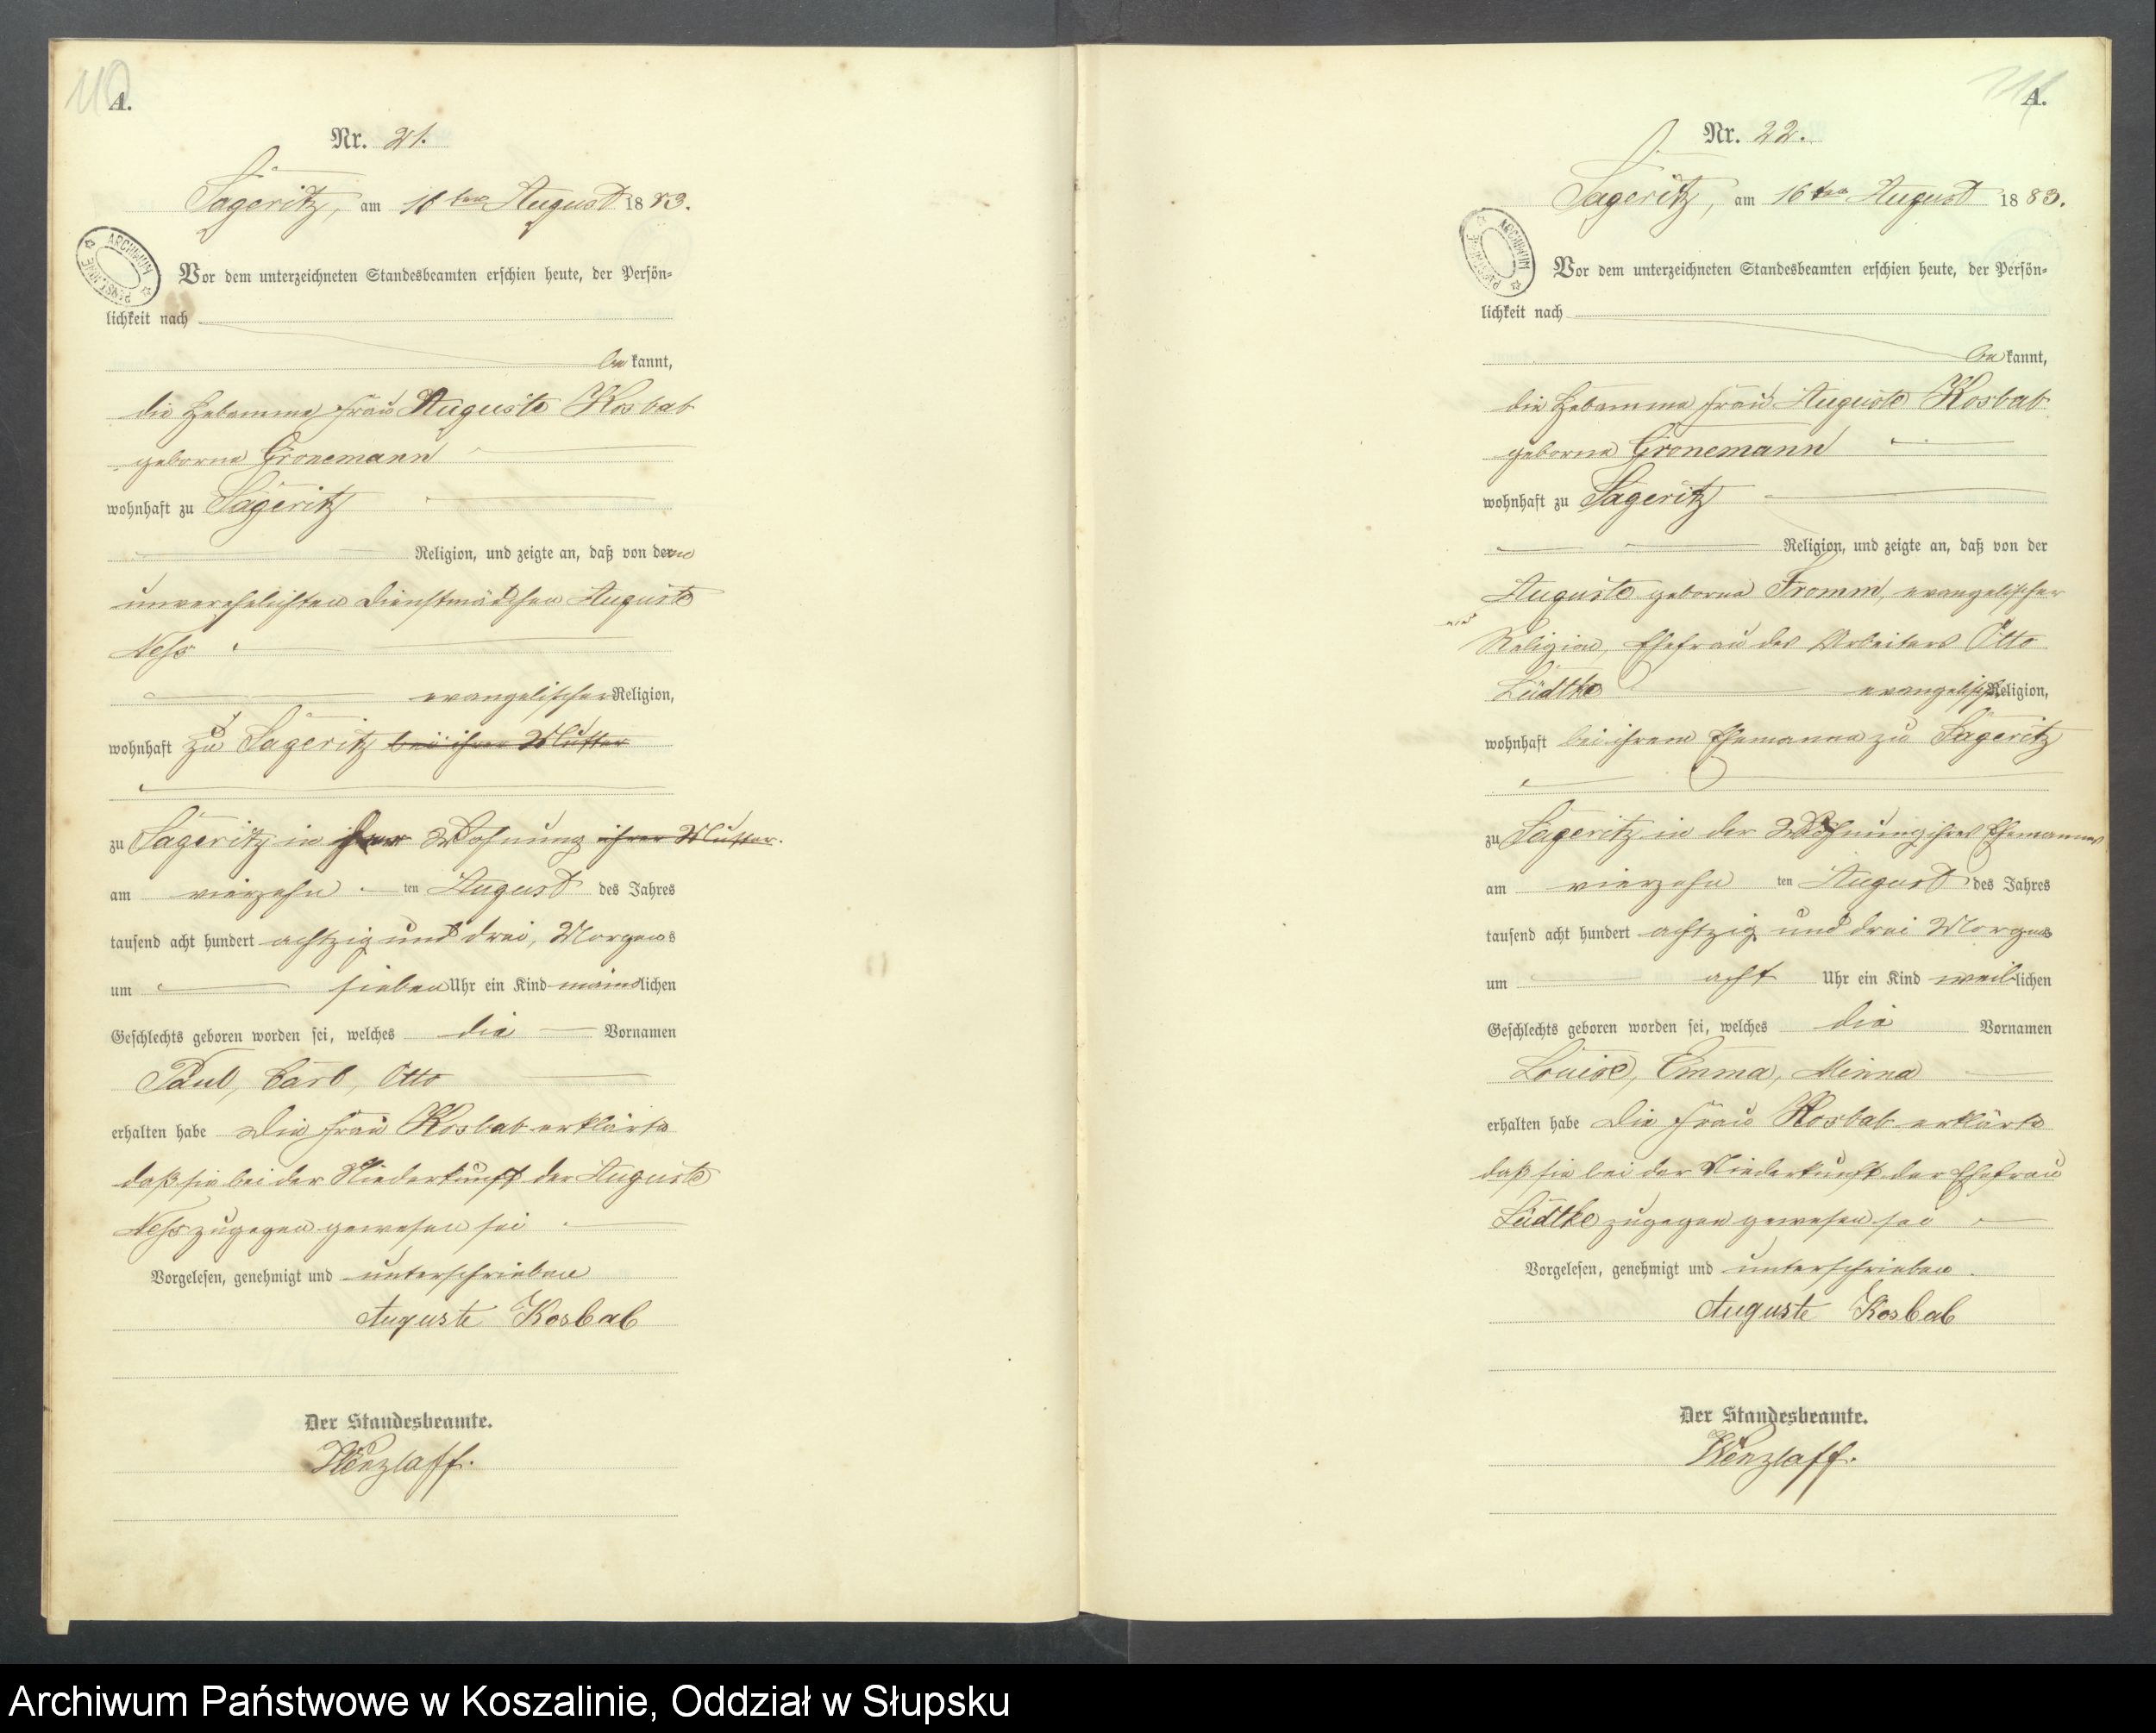 A.
Nr. 21.
Sageritz, am 16ten August 1883.
ARCHIWUM
PAŃSTWOWE
Vor dem unterzeichneten Standesbeamten erschien heute, der Persön=
lichkeit nach
be kannt,
die Hebamme Frau Auguste Kosbab
geborne Gronemann
wohnhaft zu Sageritz
Religion, und zeigte an, daß von der
unverehelichten Dienstmädchen Auguste
Ness
evangelischer Religion,
wohnhaft zu Sageritz bei ihrer Mutter
zu Sageritz in ihrer Wohnung ihrer Mutter.
am vierzehn ten August des Jahres
tausend acht hundert achtzig und drei, Morgens
um sieben Uhr ein Kind männlichen
Geschlechts geboren worden sei, welches die Vornamen
Paul, Carl, Otto
erhalten habe Die Frau Kosbab erklärte
daß sie bei der Niederkunft der Auguste
Ness zugegen gewesen sei
Vorgelesen, genehmigt und unterschrieben
Auguste Kosbab
Der Standesbeamte.
Wenzlaff.
A.
Nr. 22.
Sageritz, am 16ten August 1883.
ARCHIWUM
PAŃSTWOWE
Vor dem unterzeichneten Standesbeamten erschien heute, der Persön=
lichkeit nach
be kannt,
die Hebamme Frau Auguste Kosbab
geborne Gronemann
wohnhaft zu Sageritz
Religion, und zeigte an, daß von der
Auguste geborne Fromm, evangelischer
Religion, Ehefrau des Arbeiters Otto
Lüdtke evangelisch Religion,
wohnhaft bei ihrem Ehemanne zu Sageritz
zu Sageritz in der Wohnung ihres Ehemannes
am vierzehn ten August des Jahres
tausend acht hundert achtzig und drei Morgens
um acht Uhr ein Kind weiblichen
Geschlechts geboren worden sei, welches die Vornamen
Louise, Emma, Minna
erhalten habe Die Frau Kosbab erklärte
daß sie bei der Niederkunft der Ehefrau
Lüdtke zugegen gewesen sei
Vorgelesen, genehmigt und unterschrieben
Auguste Kosbab
Der Standesbeamte.
Wenzlaff.
Archiwum Państwowe w Koszalinie, Oddział w Słupsku